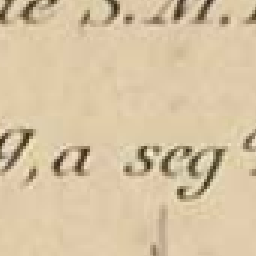 de S. M.
g, a seg